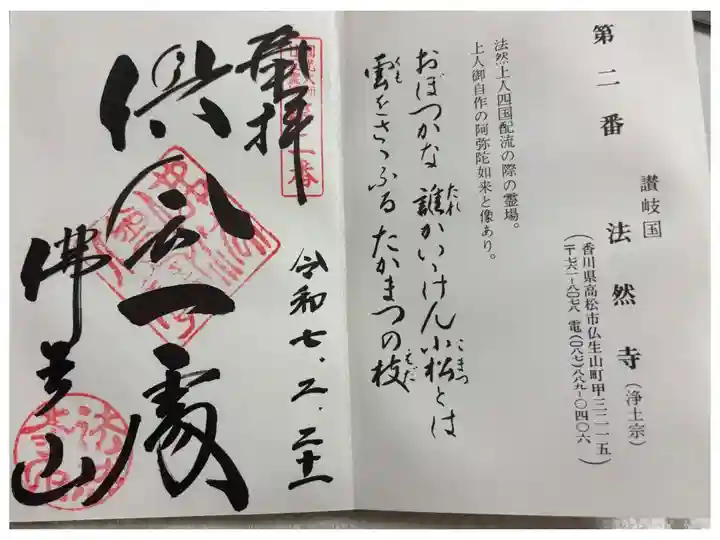 第二番
讃岐国
法然寺（浄土宗）
（香川県高松市仏生山町甲三二一五
〒七六一－八〇七八 電（〇八七）八八九－〇四〇六）
法然上人四国配流の際の霊場。
上人御自作の阿弥陀如来と像あり。
おぼつかな 誰かいいけん小松とは
たれ
こまつ
雲をさゝふる たかまつの枝
くも
えだ
奉拝
倶会一處
佛生山
令和七、二、二十一